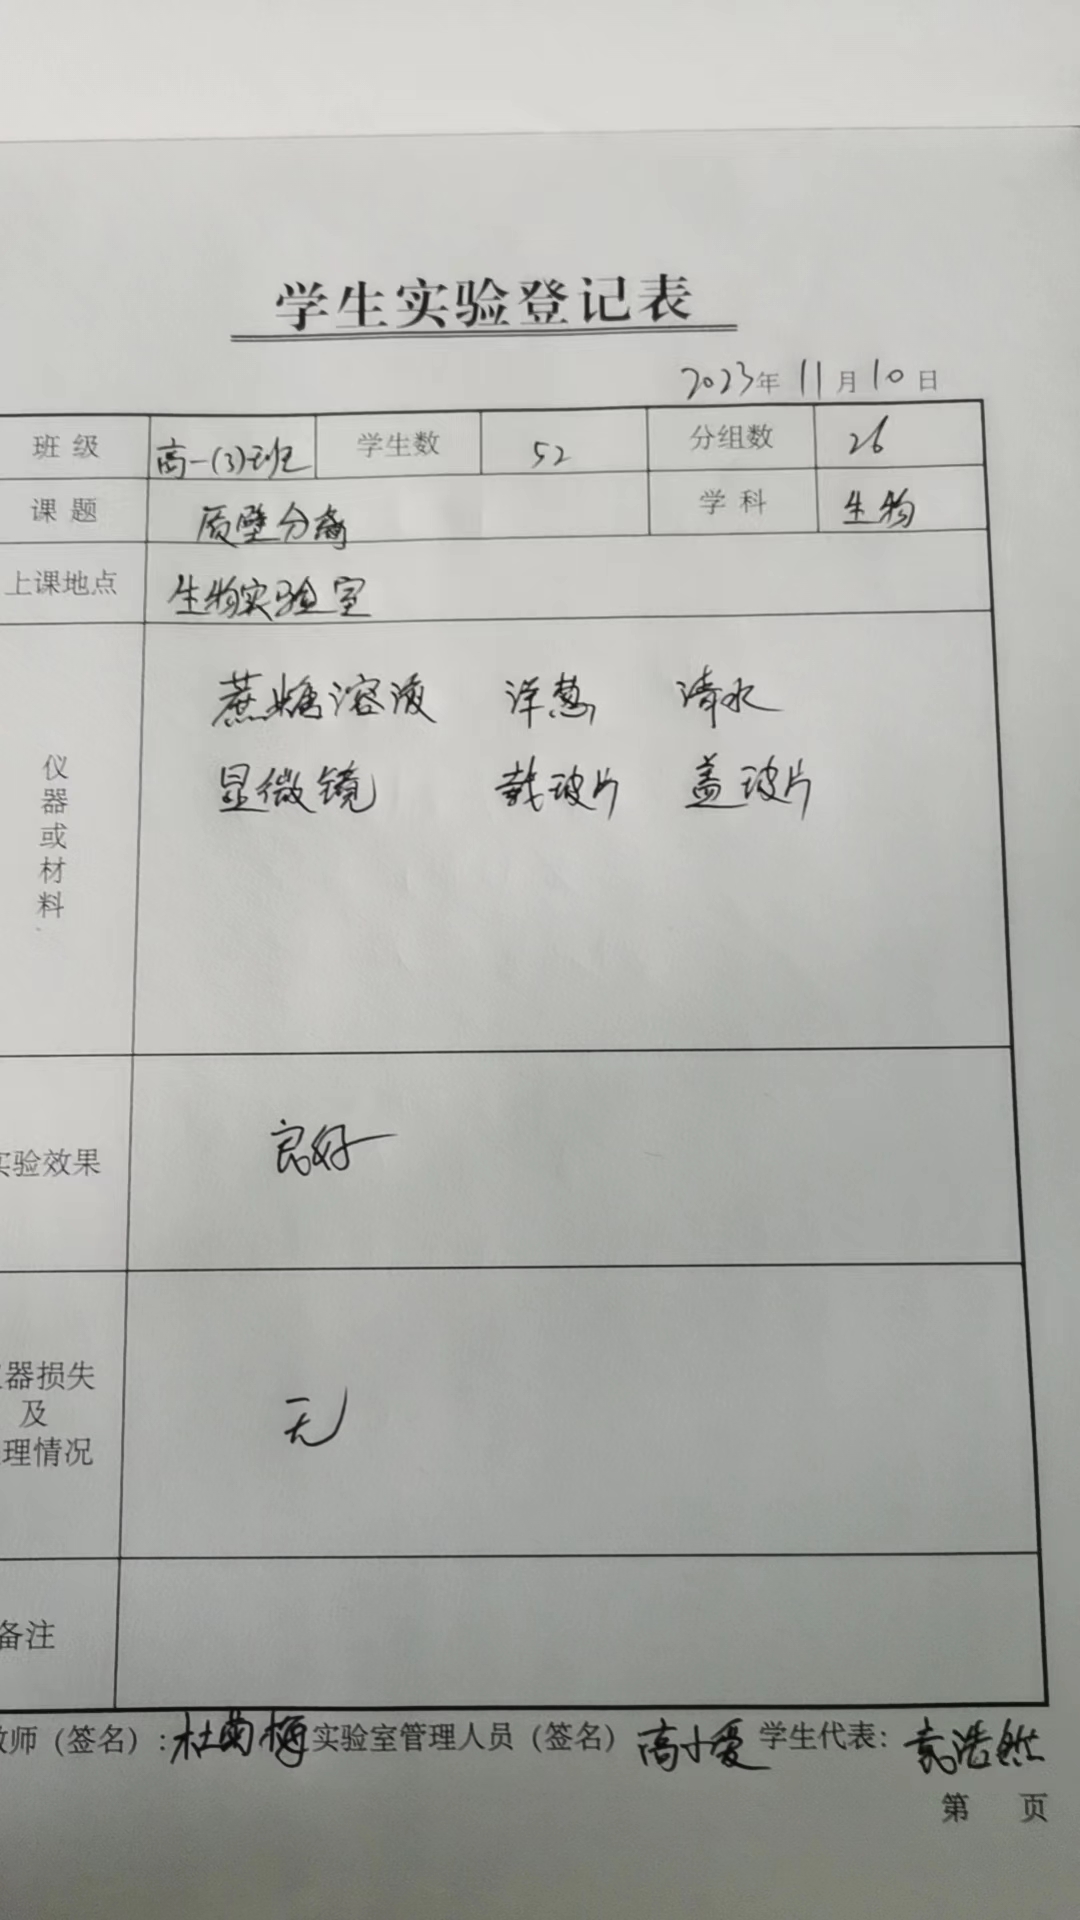 学生实验登记表
2023年 11月10日
班级 高一(3)班 学生数 52 分组数 26
课题 质壁分离 学科 生物
上课地点 生物实验室
仪器或材料
蔗糖溶液 洋葱 清水
显微镜 载玻片 盖玻片
实验效果 良好
器损失
及 无
理情况
备注
教师（签名）: 杜菊梅 实验室管理人员（签名） 高小爱 学生代表: 袁浩然
第 页